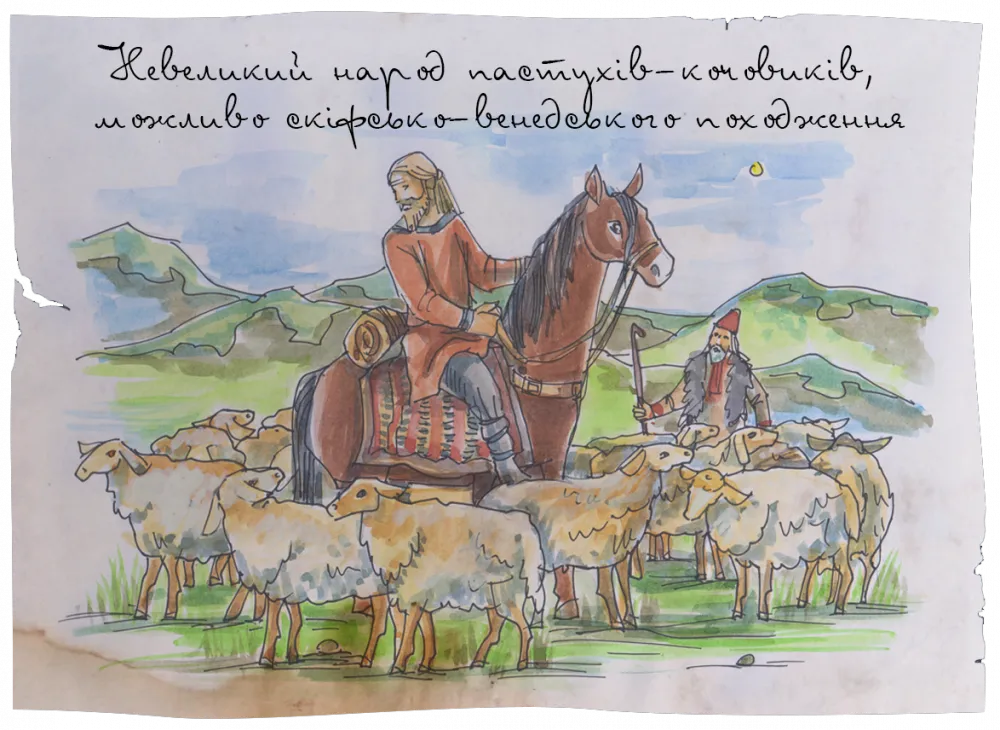 Невеликий народ пастухів-кочовиків,
можливо скіфсько-венедського походження